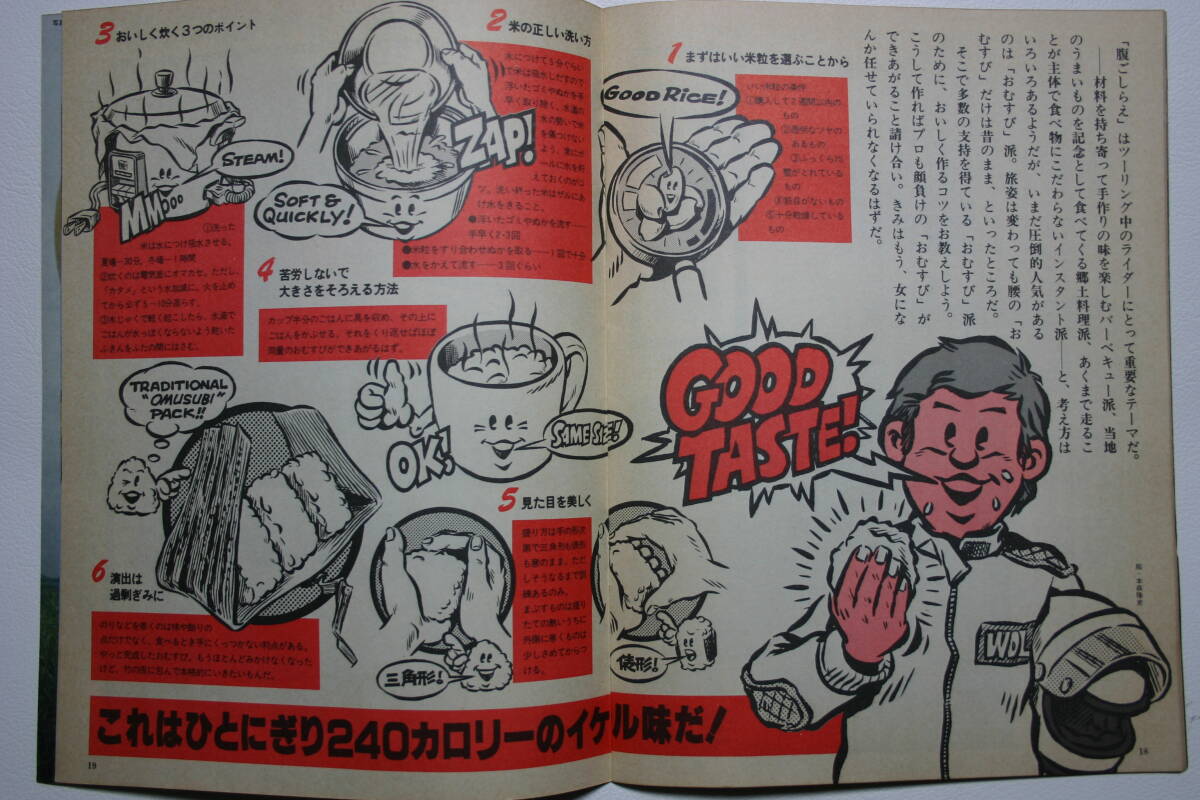 「腹ごしらえ」はツーリング中のライダーにとって重要なテーマだ。
——材料を持ち寄って手作りの味を楽しむバーベキュー派、当地
のうまいものを記念として食べてくる郷土料理派、あくまで走るこ
とが主体で食べ物にこだわらないインスタント派——と、考え方は
いろいろあるようだが、いまだ圧倒的人気がある
のは「おむすび」派。旅姿は変わっても腰の「お
むすび」だけは昔のまま、といったところだ。
そこで多数の支持を得ている「おむすび」派
のために、おいしく作るコツをお教えしよう。
こうして作ればプロも顔負けの「おむすび」が
できあがること請け合い。きみはもう、女にな
んか任せていられなくなるはずだ。
1 まずはいい米粒を選ぶことから
GOOD RICE!
いい米粒の条件
①購入して2週間以内の
もの
②透明なツヤの
あるもの
③ふっくらと
整がとれている
もの
④斑点がないもの
⑤十分乾燥している
もの
2 米の正しい洗い方
水につけて5分ぐらい
で米は吸水しだすので
浮いたゴミやぬかを手
早く取り除く。水道の
水の勢いで米
を傷つけない
よう、常にボ
ールに水を貯
えておくのがコ
ツ。洗い終った米はザルにあ
け水をきること。
●浮いたゴミやぬかを流す——
手早く2-3回
●米粒をすり合わせぬかを取る——1回で十分
●水をかえて流す——3回ぐらい
ZAP!
SOFT & QUICKLY!
3 おいしく炊く3つのポイント
STEAM!
①洗った
米は水につけ吸水させる。
夏場—30分、冬場—1時間
②炊くのは電気釜にオマカセ。ただし、
「カタメ」という水加減に。火を止め
てから必ず5〜10分蒸らす。
③木じゃくで軽く起こしたら、水滴で
ごはんが水っぽくならないよう乾いた
ふきんをふたの間にはさむ。
4 苦労しないで
大きさをそろえる方法
カップ半分のごはんに具を収め、その上に
ごはんをかぶせる。それをくり返せばほぼ
同量のおむすびができあがるはず。
OK!
SAME SIZE!
5 見た目を美しく
握り方は手の形次
第で三角形も俵形
も意のまま。ただ
しそうなるまで訓
練あるのみ。
まぶすものは握り
たての熱いうちに
外側に巻くものは
少しさめてからつ
ける。
三角形!
俵形!
6 演出は
過剰ぎみに
TRADITIONAL
"OMUSUBI"
PACK!!
のりなどを巻くのは味や飾りの
点だけでなく、食べるとき手にくっつかない利点がある。
やっと完成したおむすび。もうほとんどみかけなくなった
けど、竹の皮に包んで本格的にいきたいもんだ。
GOOD
TASTE!
絵・本森隆史
これはひとにぎり240カロリーのイケル味だ!
19
18